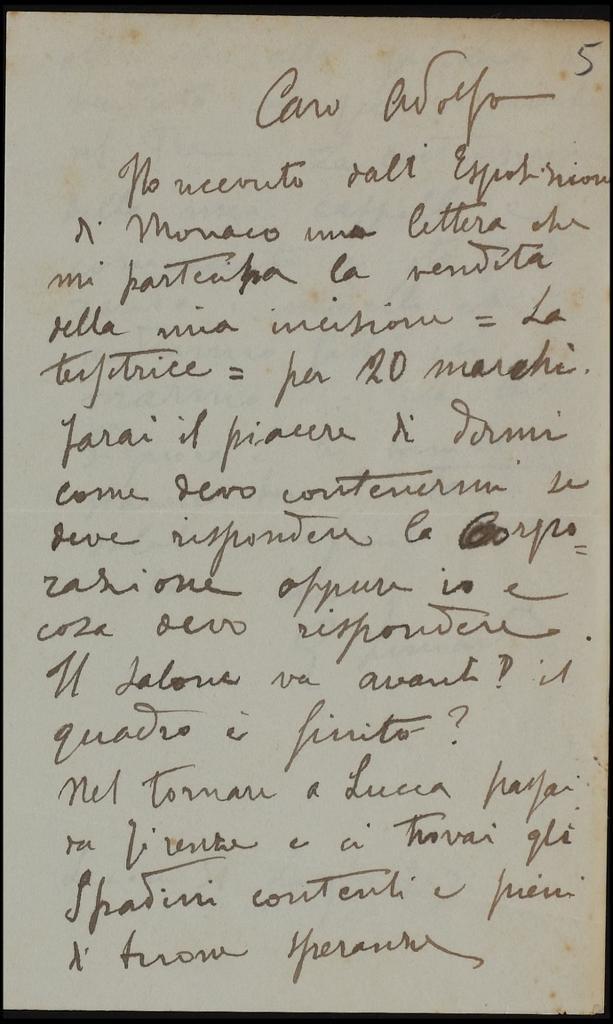 5
Caro Adolfo
Ho ricevuto dall' Esposizione
di Monaco una lettera che
mi partecipa la vendita
della mia incisione = La
tessitrice = per 20 marchi.
Farai il piacere di dirmi
come devo contenermi se
deve rispondere la Corpo=
razione oppure io e
cosa devo rispondere.
Il Salone va avanti? il
quadro è finito?
Nel tornare a Lucca passai
da Firenze e ci trovai gli
Spadini contenti e pieni
di buone speranze